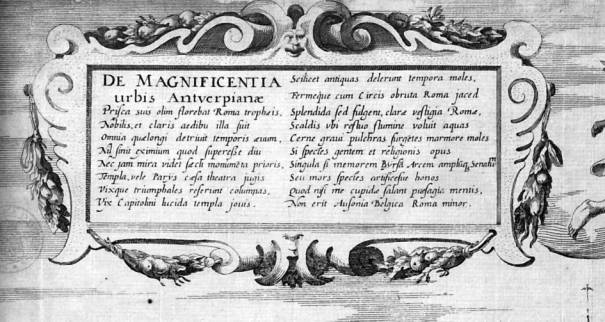 DE MAGNIFICENTIA
urbis Antverpianæ
Prisca suis olim florebat Roma tropheis,
Nobilis, et claris aedibus illa fuit
Omnia quæ longi detriuit temporis æuum,
Nil sinit eximium quod superesse diu
Nec jam mira videt sæcli monumẽta prioris,
Templa, vele Parijs cæsa theatra jugis
Vixque triumphales referunt columnas,
Vix Capitolini lucida templa jouis.
Scilicet antiquas delerunt tempora moles,
Fermeque cum Circis obruta Roma jaced
Splendida sed fulgent, claræ vestigia Romæ,
Scaldis vbi restuo flumine voluit aquas
Cerne graui pulchras surgẽtes marmore moles
Si spectes gentem et religionis opus
Singula si memorem Bursã Arcem amplũq Senatũ
Seu mors spectes artificesue honos
Quod nisi me cupidæ falant præsagia mentis,
Non erit Ausonia Belgica Roma minor.